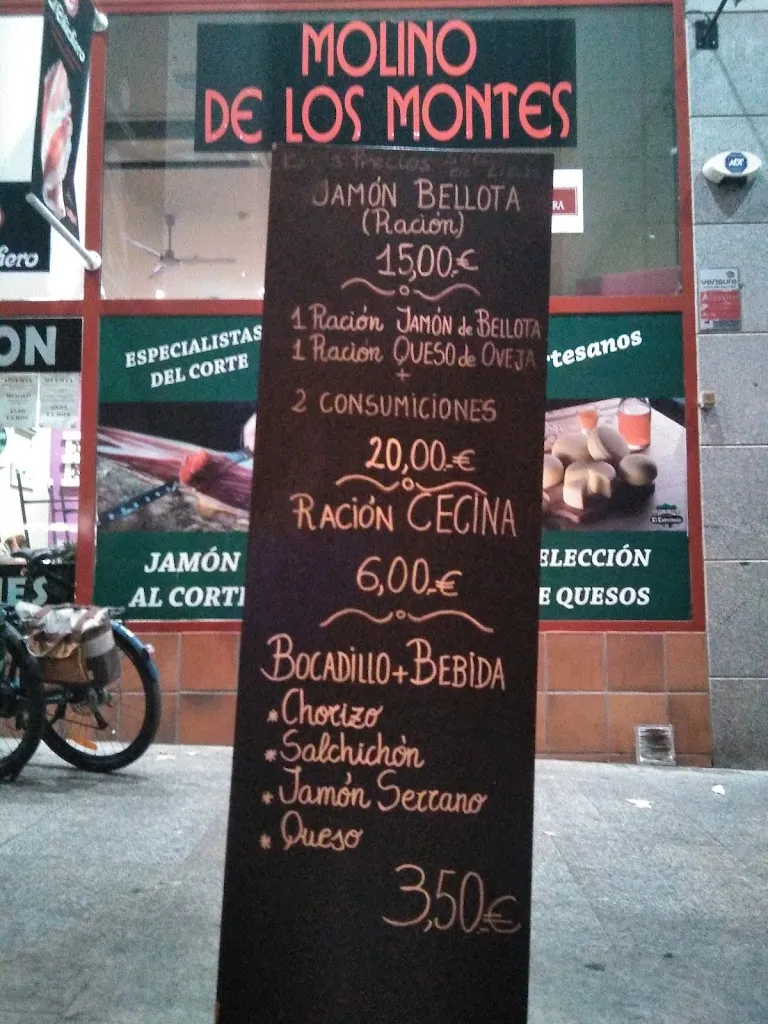 MOLINO
DE LOS MONTES
JAMÓN BELLOTA
(Ración)
15,00.-€
1 Ración JAMÓN de BELLOTA
1 Ración QUESO de OVEJA
+
2 CONSUMICIONES
20,00.-€
RACIÓN CECINA
6,00.-€
BOCADILLO + BEBIDA
* Chorizo
* Salchichón
* Jamón Serrano
* Queso
3,50.-€
ESPECIALISTAS
DEL CORTE
JAMÓN
AL CORTE
rtesanos
ELECCIÓN
E QUESOS
ON
fiero
RA
ADT
verisure